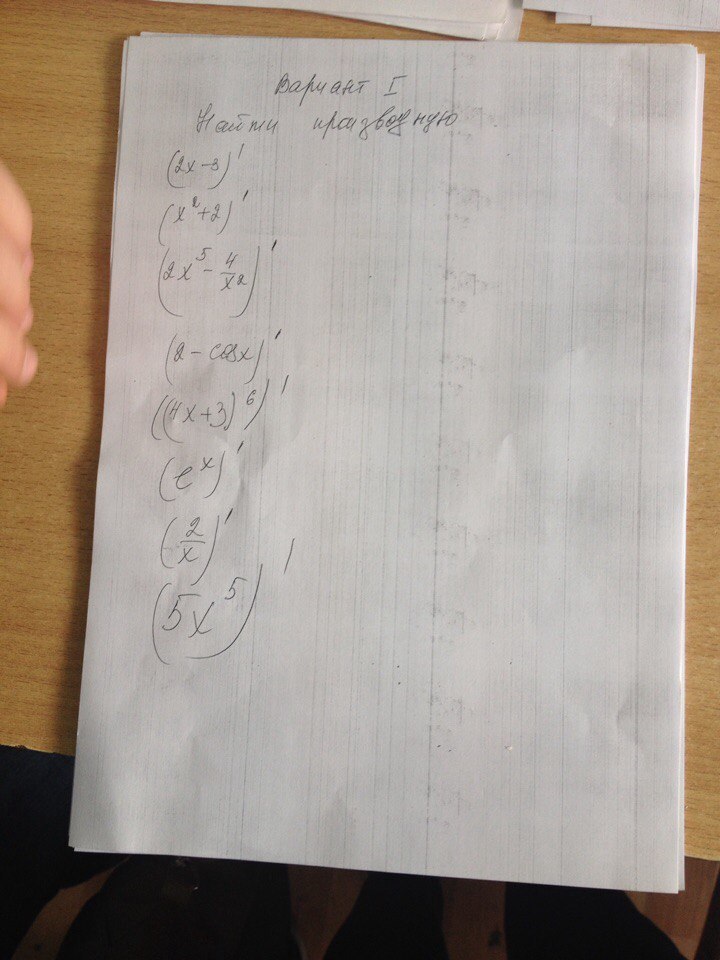 Вариант I
Найти производную
(2x-3)'
(x²+2)'
(2x⁵ - 4/x²)'
(2 - cosx)'
((4x+3)⁶)'
(eˣ)'
(2/x)'
(5x⁵)'